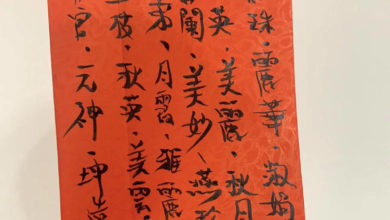 珠、麗華、淑娟
英、美麗、秋月
蘭、美妙、燕玲
弟、月霞、雅麗
枝、秋英、美雲
宫、元神、坤